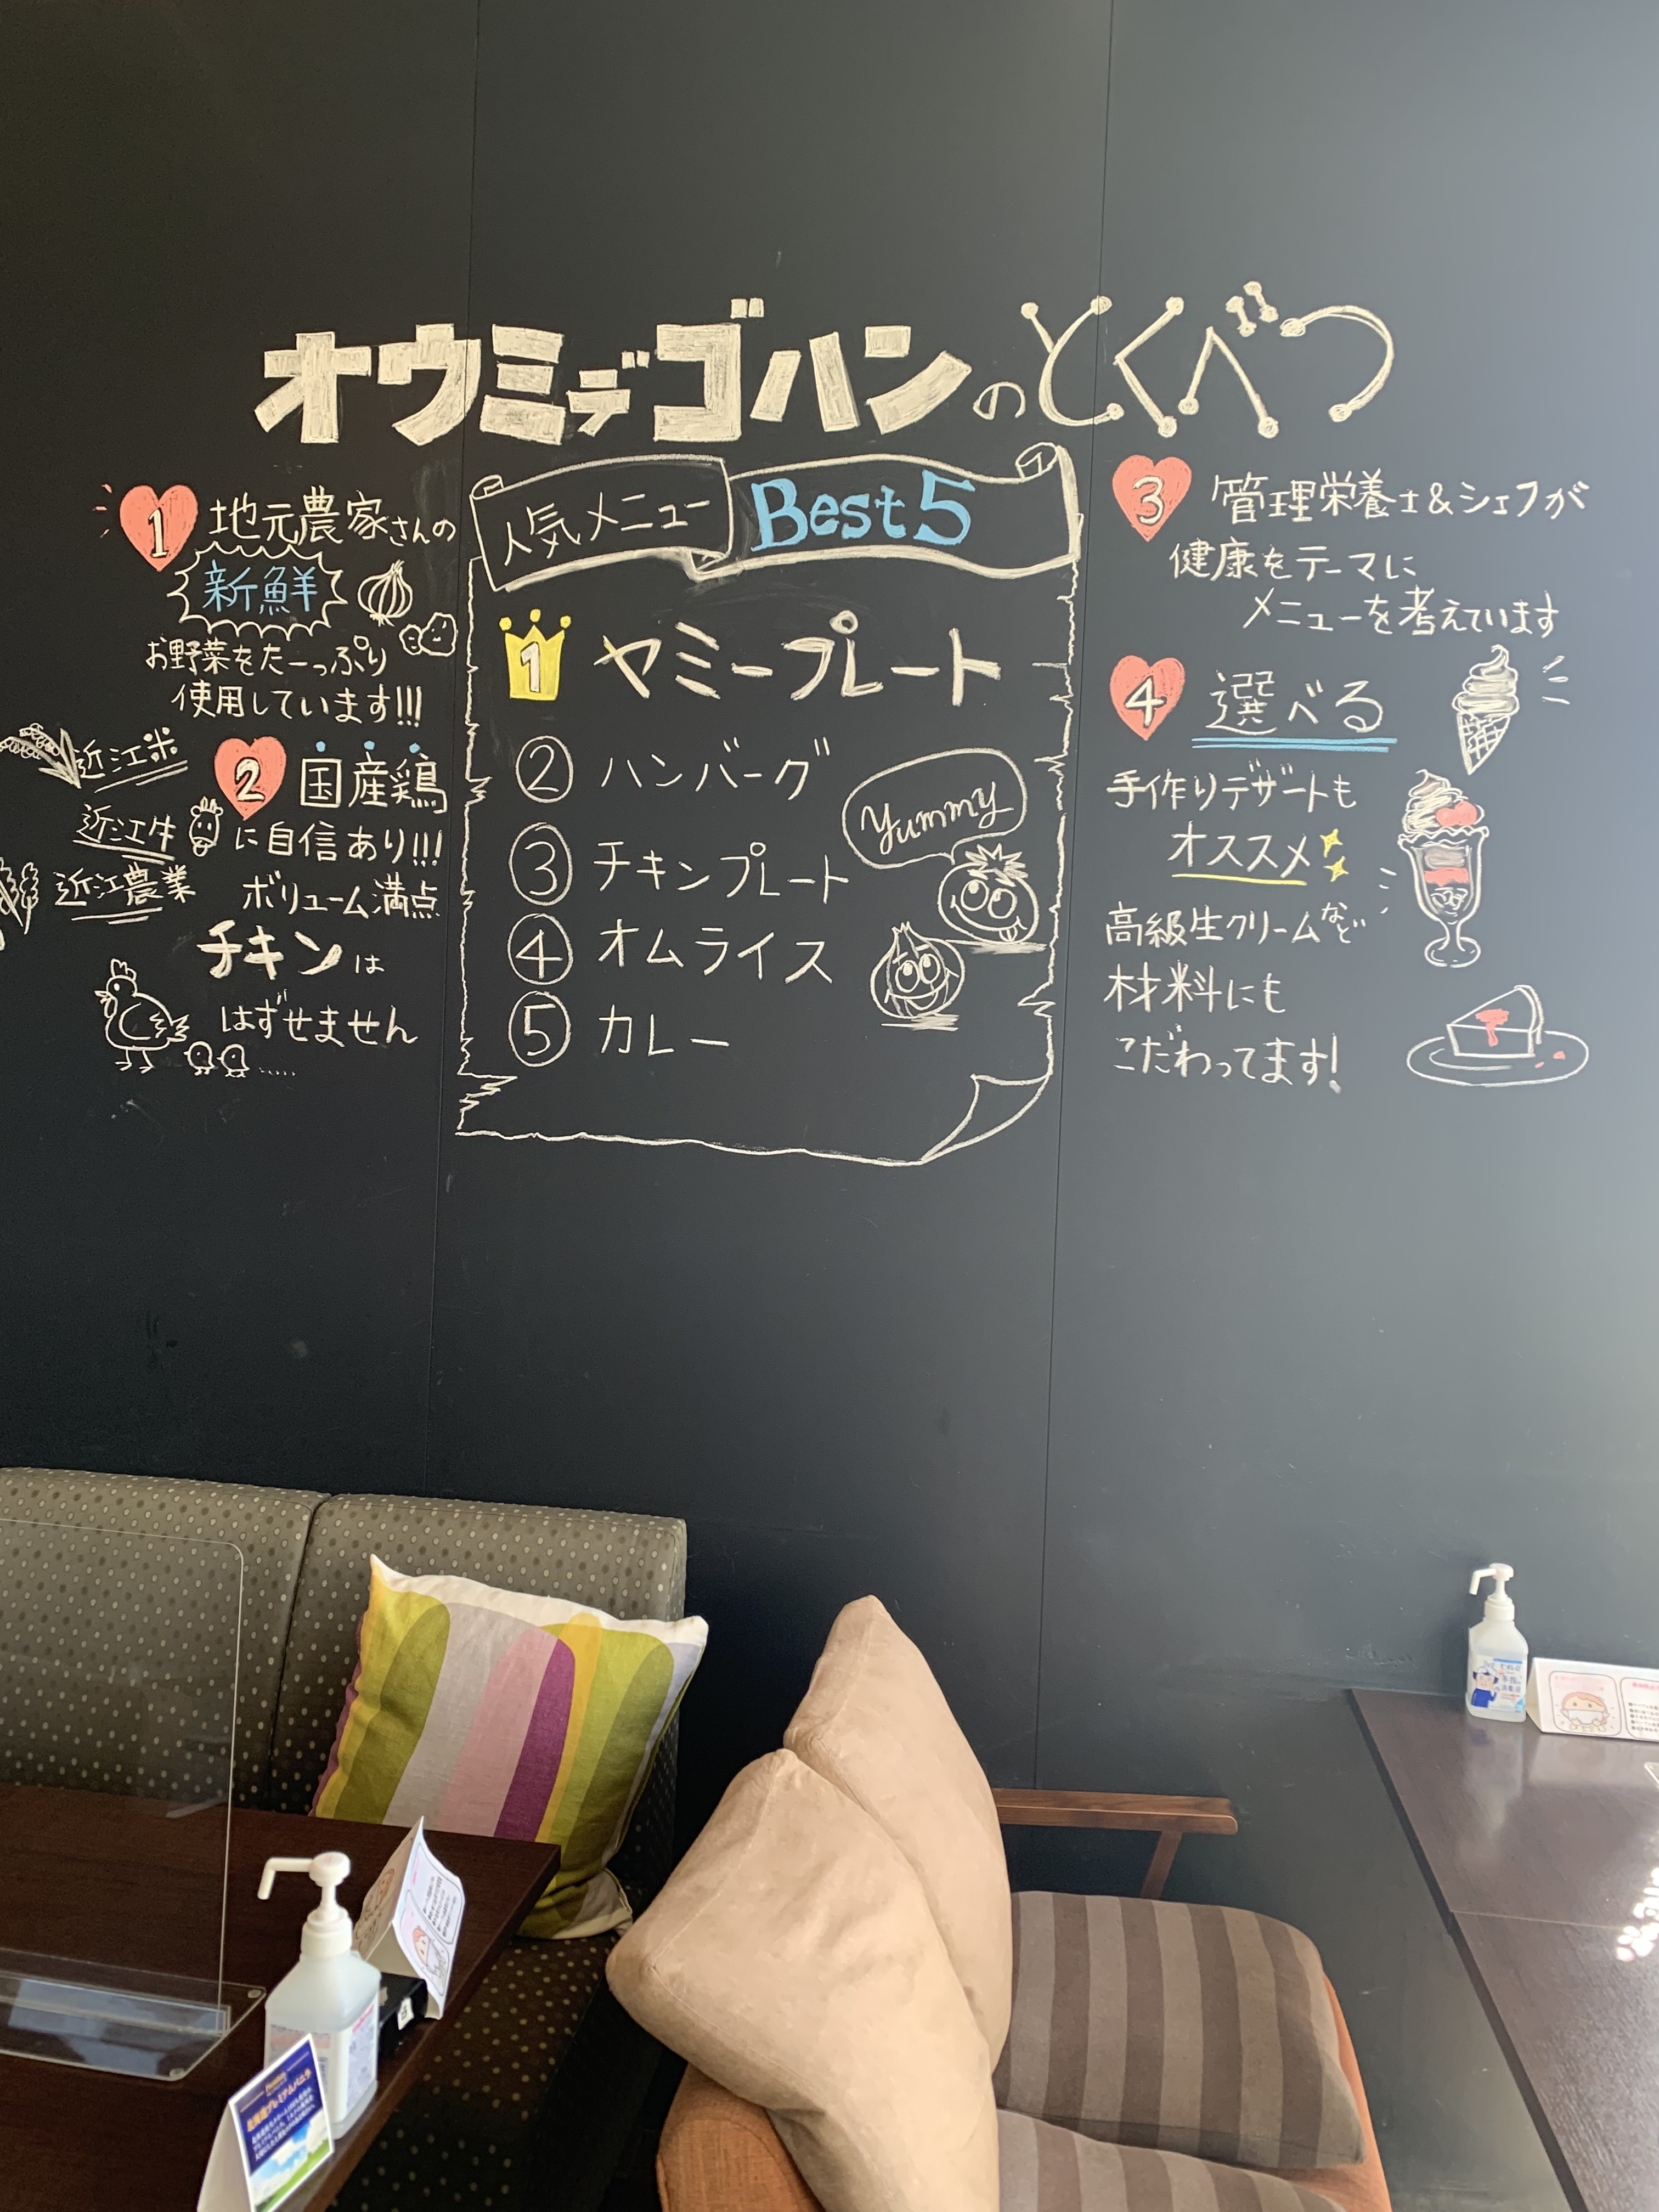 オウミデゴハンのとくべつ
1 地元農家さんの
新鮮
お野菜をたーっぷり
使用しています!!!
近江米
近江牛
近江農業
2 国産鶏
に自信あり!!!
ボリューム満点
チキンは
はずせません
人気メニュー Best5
1 ヤミープレート
② ハンバーグ
③ チキンプレート
④ オムライス
⑤ カレー
Yummy
3 管理栄養士&シェフが
健康をテーマに
メニューを考えています
4 選べる
手作りデザートも
オススメ
高級生クリームなど
材料にも
こだわってます!
北海道プレミアムバニラ